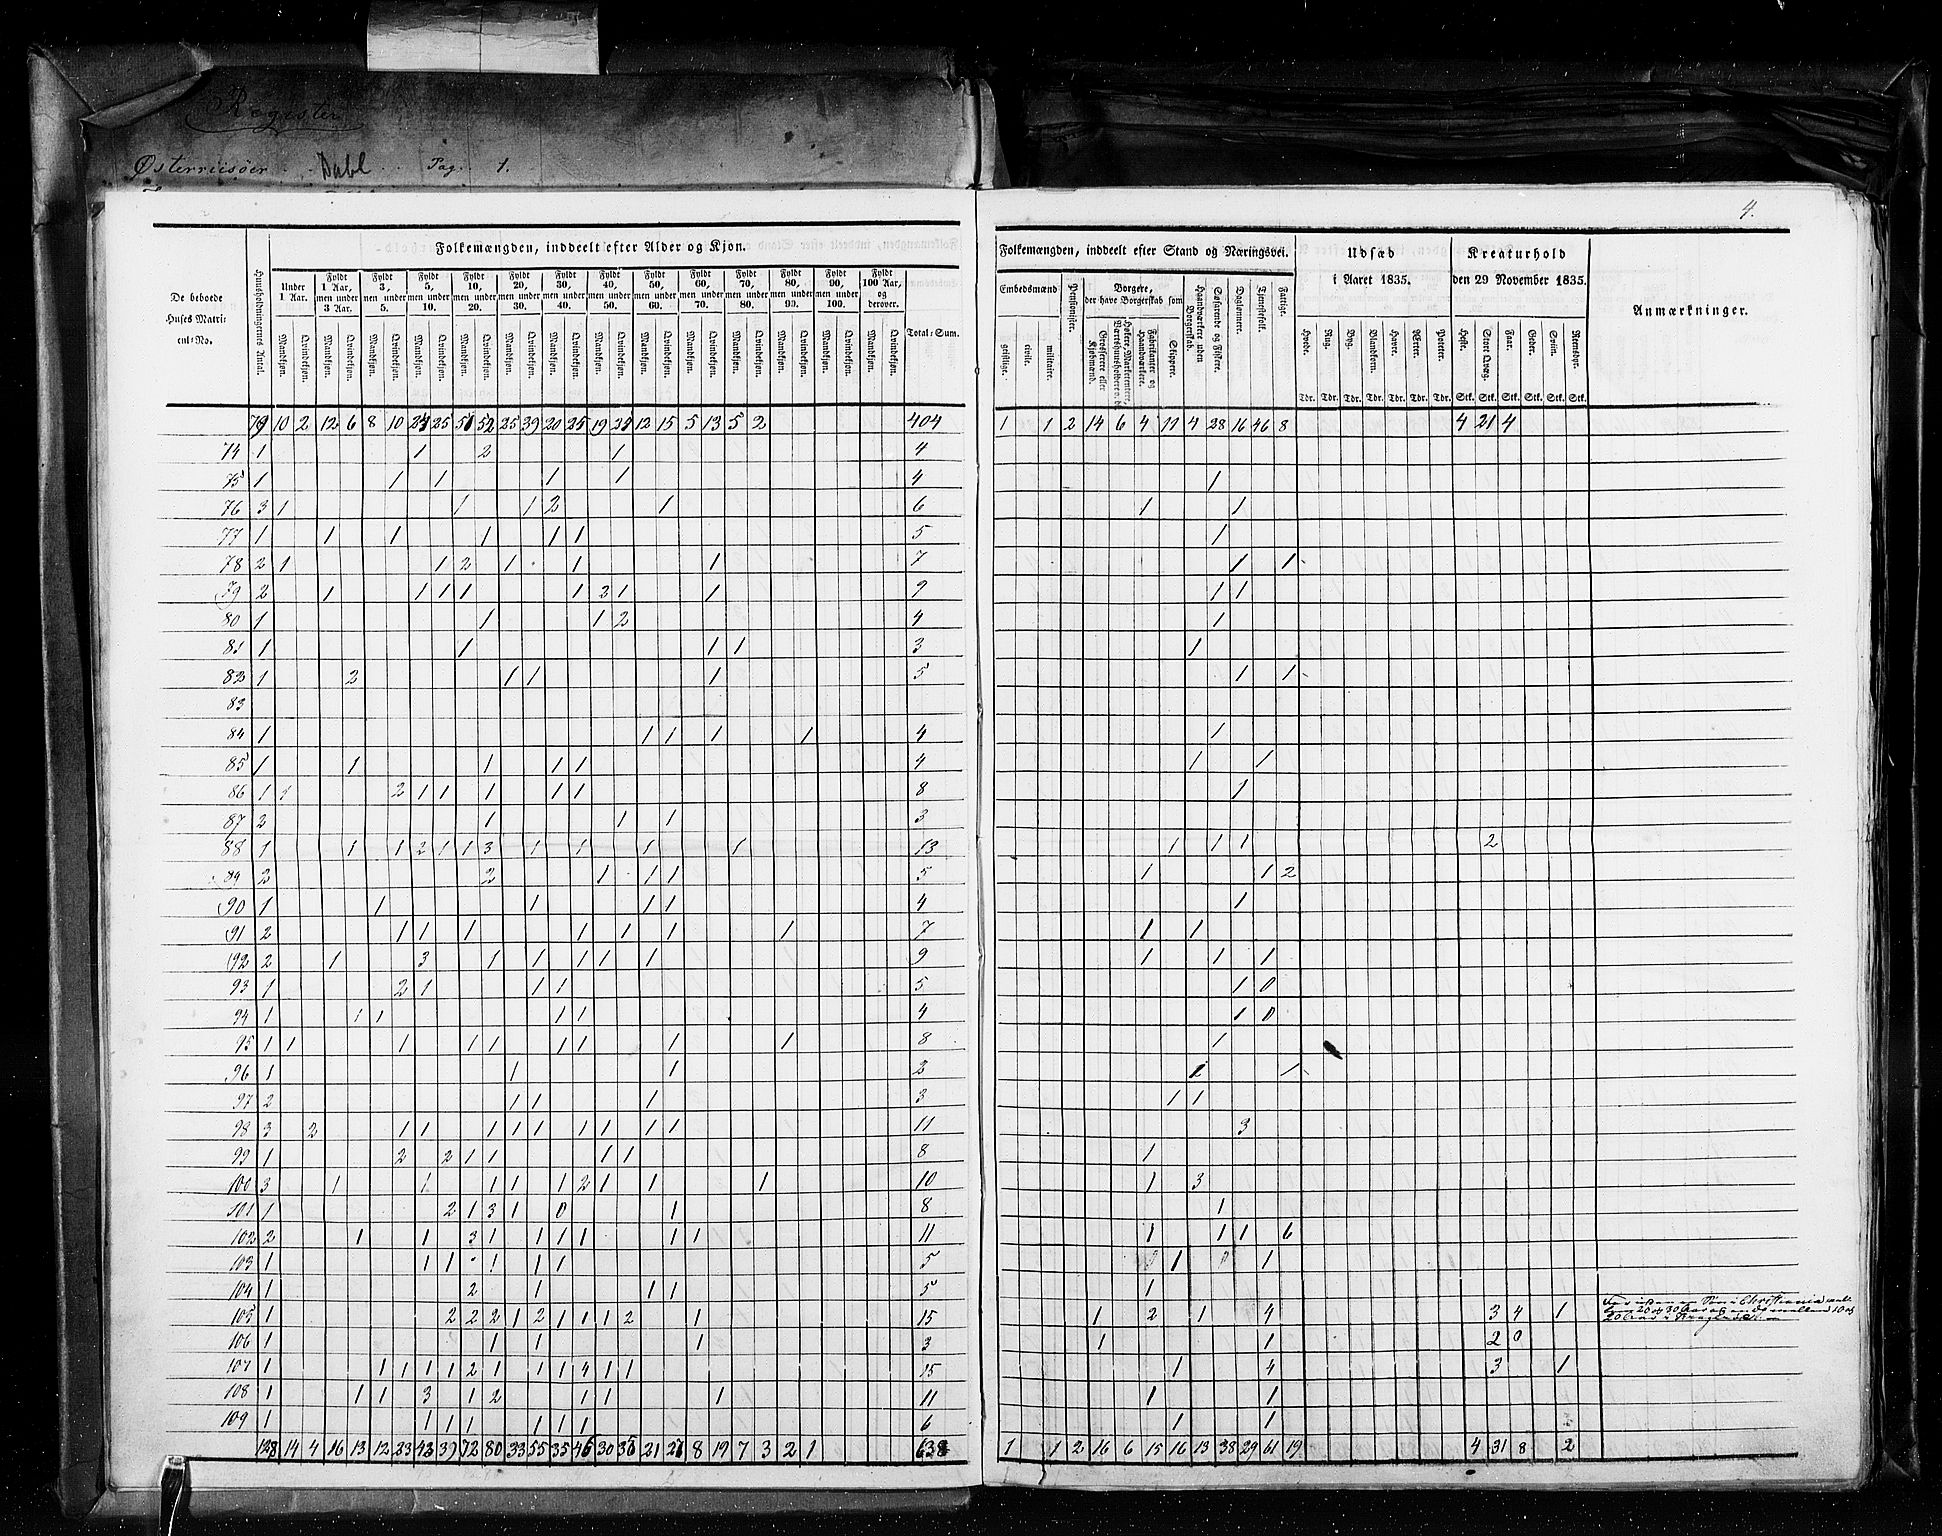 Register
Østerriisöer . . Dabl . . . Pag. 1.
4.
De beboede Huses Matricul-No.
Huusholdningernes Antal.
Folkemængden, inddeelt efter Alder og Kjøn.
Under 1 Aar.
Fyldt 1 Aar, men under 3 Aar.
Fyldt 3, men under 5.
Fyldt 5, men under 10.
Fyldt 10, men under 20.
Fyldt 20, men under 30.
Fyldt 30, men under 40.
Fyldt 40, men under 50.
Fyldt 50, men under 60.
Fyldt 60, men under 70.
Fyldt 70, men under 80.
Fyldt 80, men under 90.
Fyldt 90, men under 100.
Fyldt 100 Aar, og derover.
Mandkjøn. Qvindekjøn. Mandkjøn. Qvindekjøn. Mandkjøn. Qvindekjøn. Mandkjøn. Qvindekjøn. Mandkjøn. Qvindekjøn. Mandkjøn. Qvindekjøn. Mandkjøn. Qvindekjøn. Mandkjøn. Qvindekjøn. Mandkjøn. Qvindekjøn. Mandkjøn. Qvindekjøn. Mandkjøn. Qvindekjøn. Mandkjøn. Qvindekjøn. Mandkjøn. Qvindekjøn. Mandkjøn. Qvindekjøn.
Total-Sum.
Folkemængden, inddeelt efter Stand og Næringsvei.
Embedsmænd
geistlige. civile. militaire.
Pensionister.
Borgere, der have Borgerskab som
Grosserere eller Kjøbmænd.
Fabrikanter og Haandværkere.
Skippere.
Haandværkere uden Borgerskab.
Søfarende og Fiskere.
Daglønnere.
Tjenestefolk.
Fattige.
Udsæd i Aaret 1835.
Hvede. Rug. Byg. Blandkorn. Havre. Ærter. Poteter.
Tdr. Tdr. Tdr. Tdr. Tdr. Tdr. Tdr.
Kreaturhold den 29 November 1835.
Heste. Stort Qvæg. Faar. Geder. Sviin. Rensdyr.
Stk. Stk. Stk. Stk. Stk. Stk.
Anmærkninger.
10 2 12 6 8 10 25 52 25 39 20 25 19 12 15 5 13 5 2 404 1 1 2 14 6 4 11 4 28 16 46 8 4 21 4
74 1 1 2 1 4
75 1 1 1 1 1 4 1
76 3 1 1 1 2 1 6 1 1
77 1 1 1 1 1 1 5 1
78 2 1 1 2 1 1 1 7 1 1
79 2 1 1 1 1 1 2 1 1 9 1 1
80 1 1 1 2 4 1
81 1 1 1 1 3 1
82 1 2 1 1 1 5 1 1
83
84 1 1 1 1 1 4 1
85 1 1 1 1 1 4 1 1
86 1 1 2 1 1 1 1 1 8 1
87 2 1 1 1 3
88 1 1 1 2 1 1 3 1 1 1 1 13 1 1 1 2
89 2 2 1 1 1 5 1 1 2
90 1 1 1 1 1 4 1
91 2 1 1 1 1 1 1 1 7 1 1
92 2 1 3 1 1 1 1 1 9 1 1 1
93 1 2 1 1 1 5 1 0
94 1 1 1 1 1 4 1 0
95 1 1 1 1 1 1 1 1 1 8 1
96 1 1 1 2 1
97 2 1 1 1 3 1 1
98 3 2 1 1 1 1 1 1 1 1 1 11 3
99 1 2 2 1 1 1 1 8 1
100 3 1 1 1 1 1 2 1 1 1 10 1 3
101 1 2 1 3 1 0 1 8 1
102 2 1 1 3 1 1 1 1 1 1 11 1 1 1 6
103 1 1 1 1 1 1 5 1 1
104 1 2 1 1 1 5 1
105 1 2 2 2 1 2 1 1 1 2 1 15 1 2 1 4 3 4 1
106 1 1 1 1 3 1 1 2 0
107 1 1 1 1 1 2 1 1 1 4 1 1 15 1 4 3 1
108 1 1 1 3 1 2 1 1 1 11 1 1
109 1 1 1 1 1 1 1 6 1 1
128 14 4 16 13 12 23 39 72 80 33 55 35 46 30 35 21 27 8 19 7 3 2 1 638 1 1 2 16 6 15 16 13 38 29 61 19 4 31 8 2